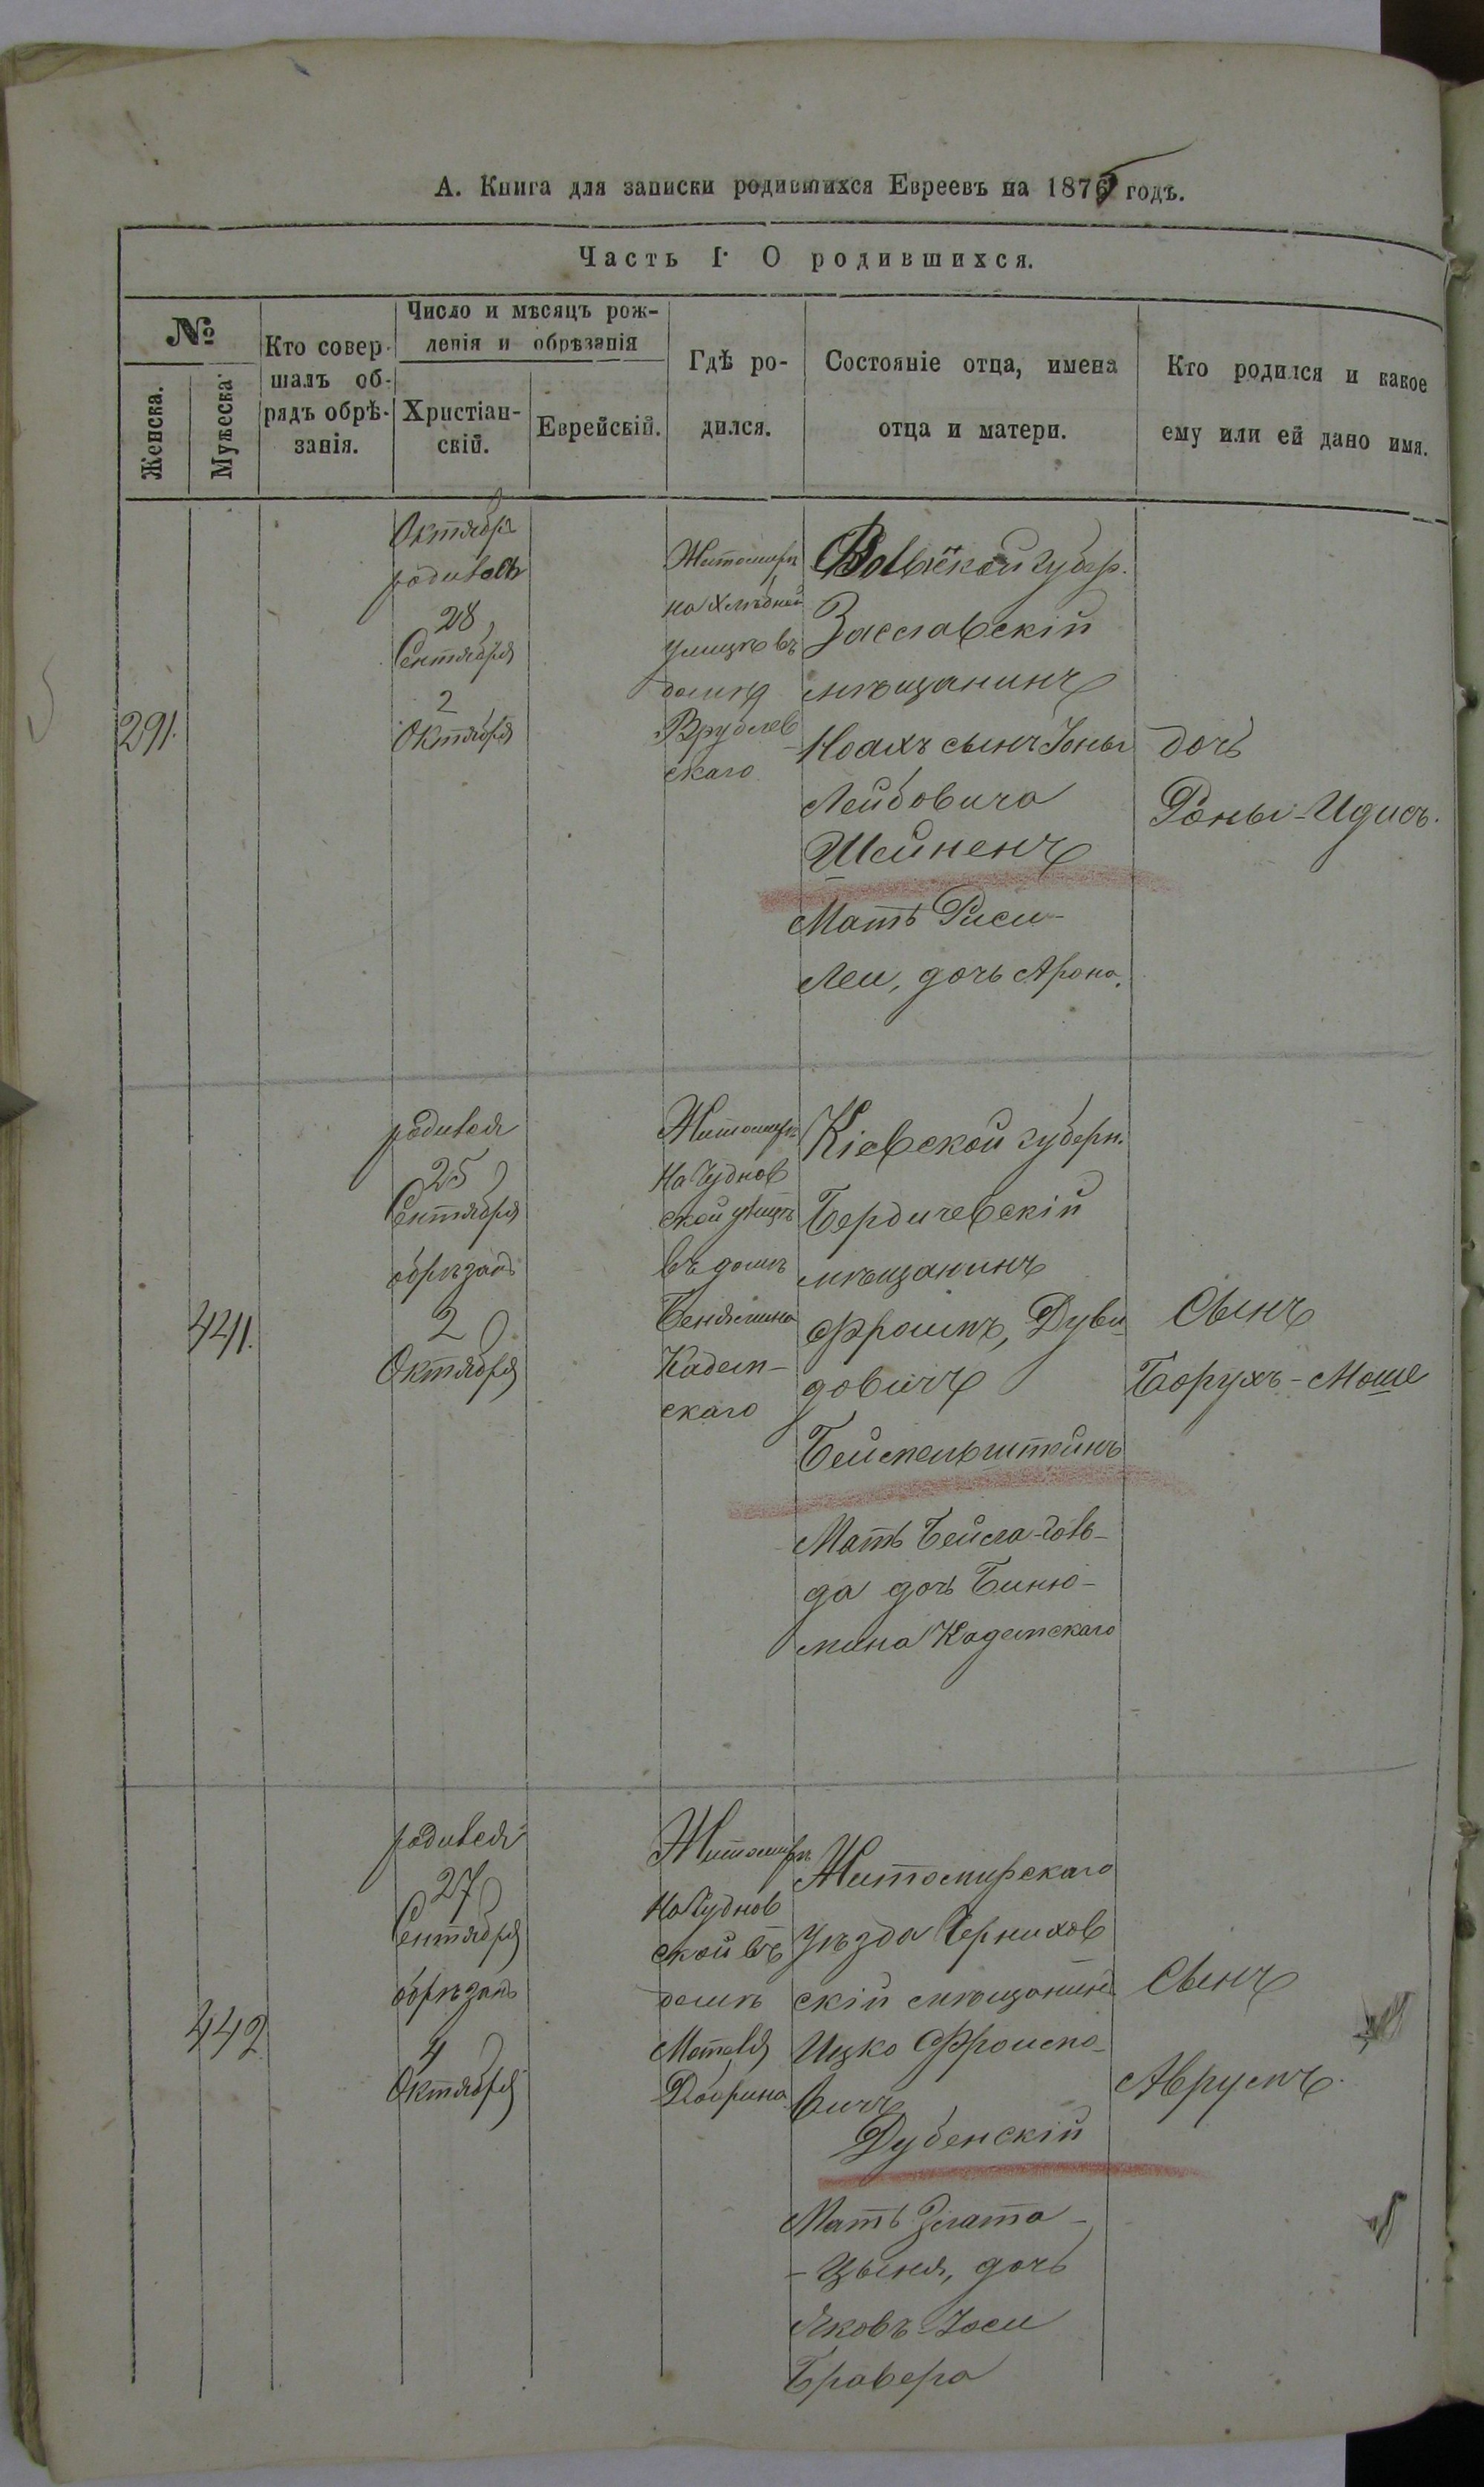 А. Книга для записки родившихся Евреевъ на 1875 годъ.
Часть I. О родившихся.
№
Женска.
Мужеска
Кто совер-
шалъ об-
рядъ обрѣ-
занія.
Число и мѣсяцъ рож-
денія и обрѣзанія
Христіан-
скій.
Еврейскій.
Гдѣ ро-
дился.
Состояніе отца, имена
отца и матери.
Кто родился и какое
ему или ей дано имя.
291.
Октября
родилась
28
Сентября
2
Октября
Житомиръ
на
улицѣ въ
домѣ
Врублев
скаго
Волынской губер.
Заславскій
мѣщанинъ
Ноахъ сынъ Іоны
Лейбовича
Шейненъ
Мать Риси-
Леи, дочь Арона.
дочь
Роны-Идись.
441.
родился
25
Сентября
обрѣзанъ
2
Октября
Житомиръ
на Чуднов
ской улицѣ
въ домѣ
Бенямина
Кадем-
скаго
Кіевской губерн.
Бердичевскій
мѣщанинъ
Фроимъ, Дуви
довичъ
Бейспельштейнъ
Мать Бейла-Голь-
да дочь Биню-
мина Кадемскаго
Сынъ
Борухъ-Моше
442
родился
27
Сентября
обрѣзанъ
4
Октября
Житомиръ
на Чуднов
ской въ
домѣ
Мотеля
Дворина
Житомирскаго
уѣзда Чернихов
скій мѣщанинъ
Ицко Фроимо-
вичъ
Дубенскій
Мать Злата-
-Цыня, дочь
Яковъ-Іоси
Бравера
Сынъ
Аврумъ.